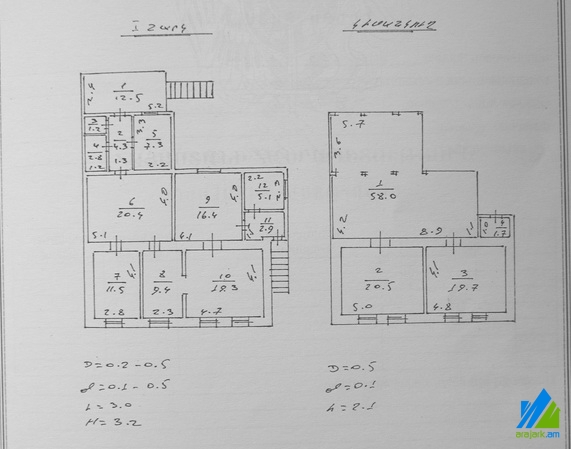 1
12.5
2.4
5.2
3
1.2
2
4.3
2.3
4
2.8
2.2
5
7.3
3.3
2.2
6
20.4
5.1
4.0
9
16.4
4.1
4.0
2.2
12
5.1
11
2.9
7
11.5
2.8
4.1
8
9.4
2.3
10
19.3
4.7
4.1
D=0.2-0.5
d=0.1-0.5
h=3.0
H=3.2
5.7
3.6
1
58.0
4.2
8.9
4
1.7
2
20.5
5.0
3
19.7
4.8
4.1
D=0.5
d=0.1
h=2.1
arajark.am